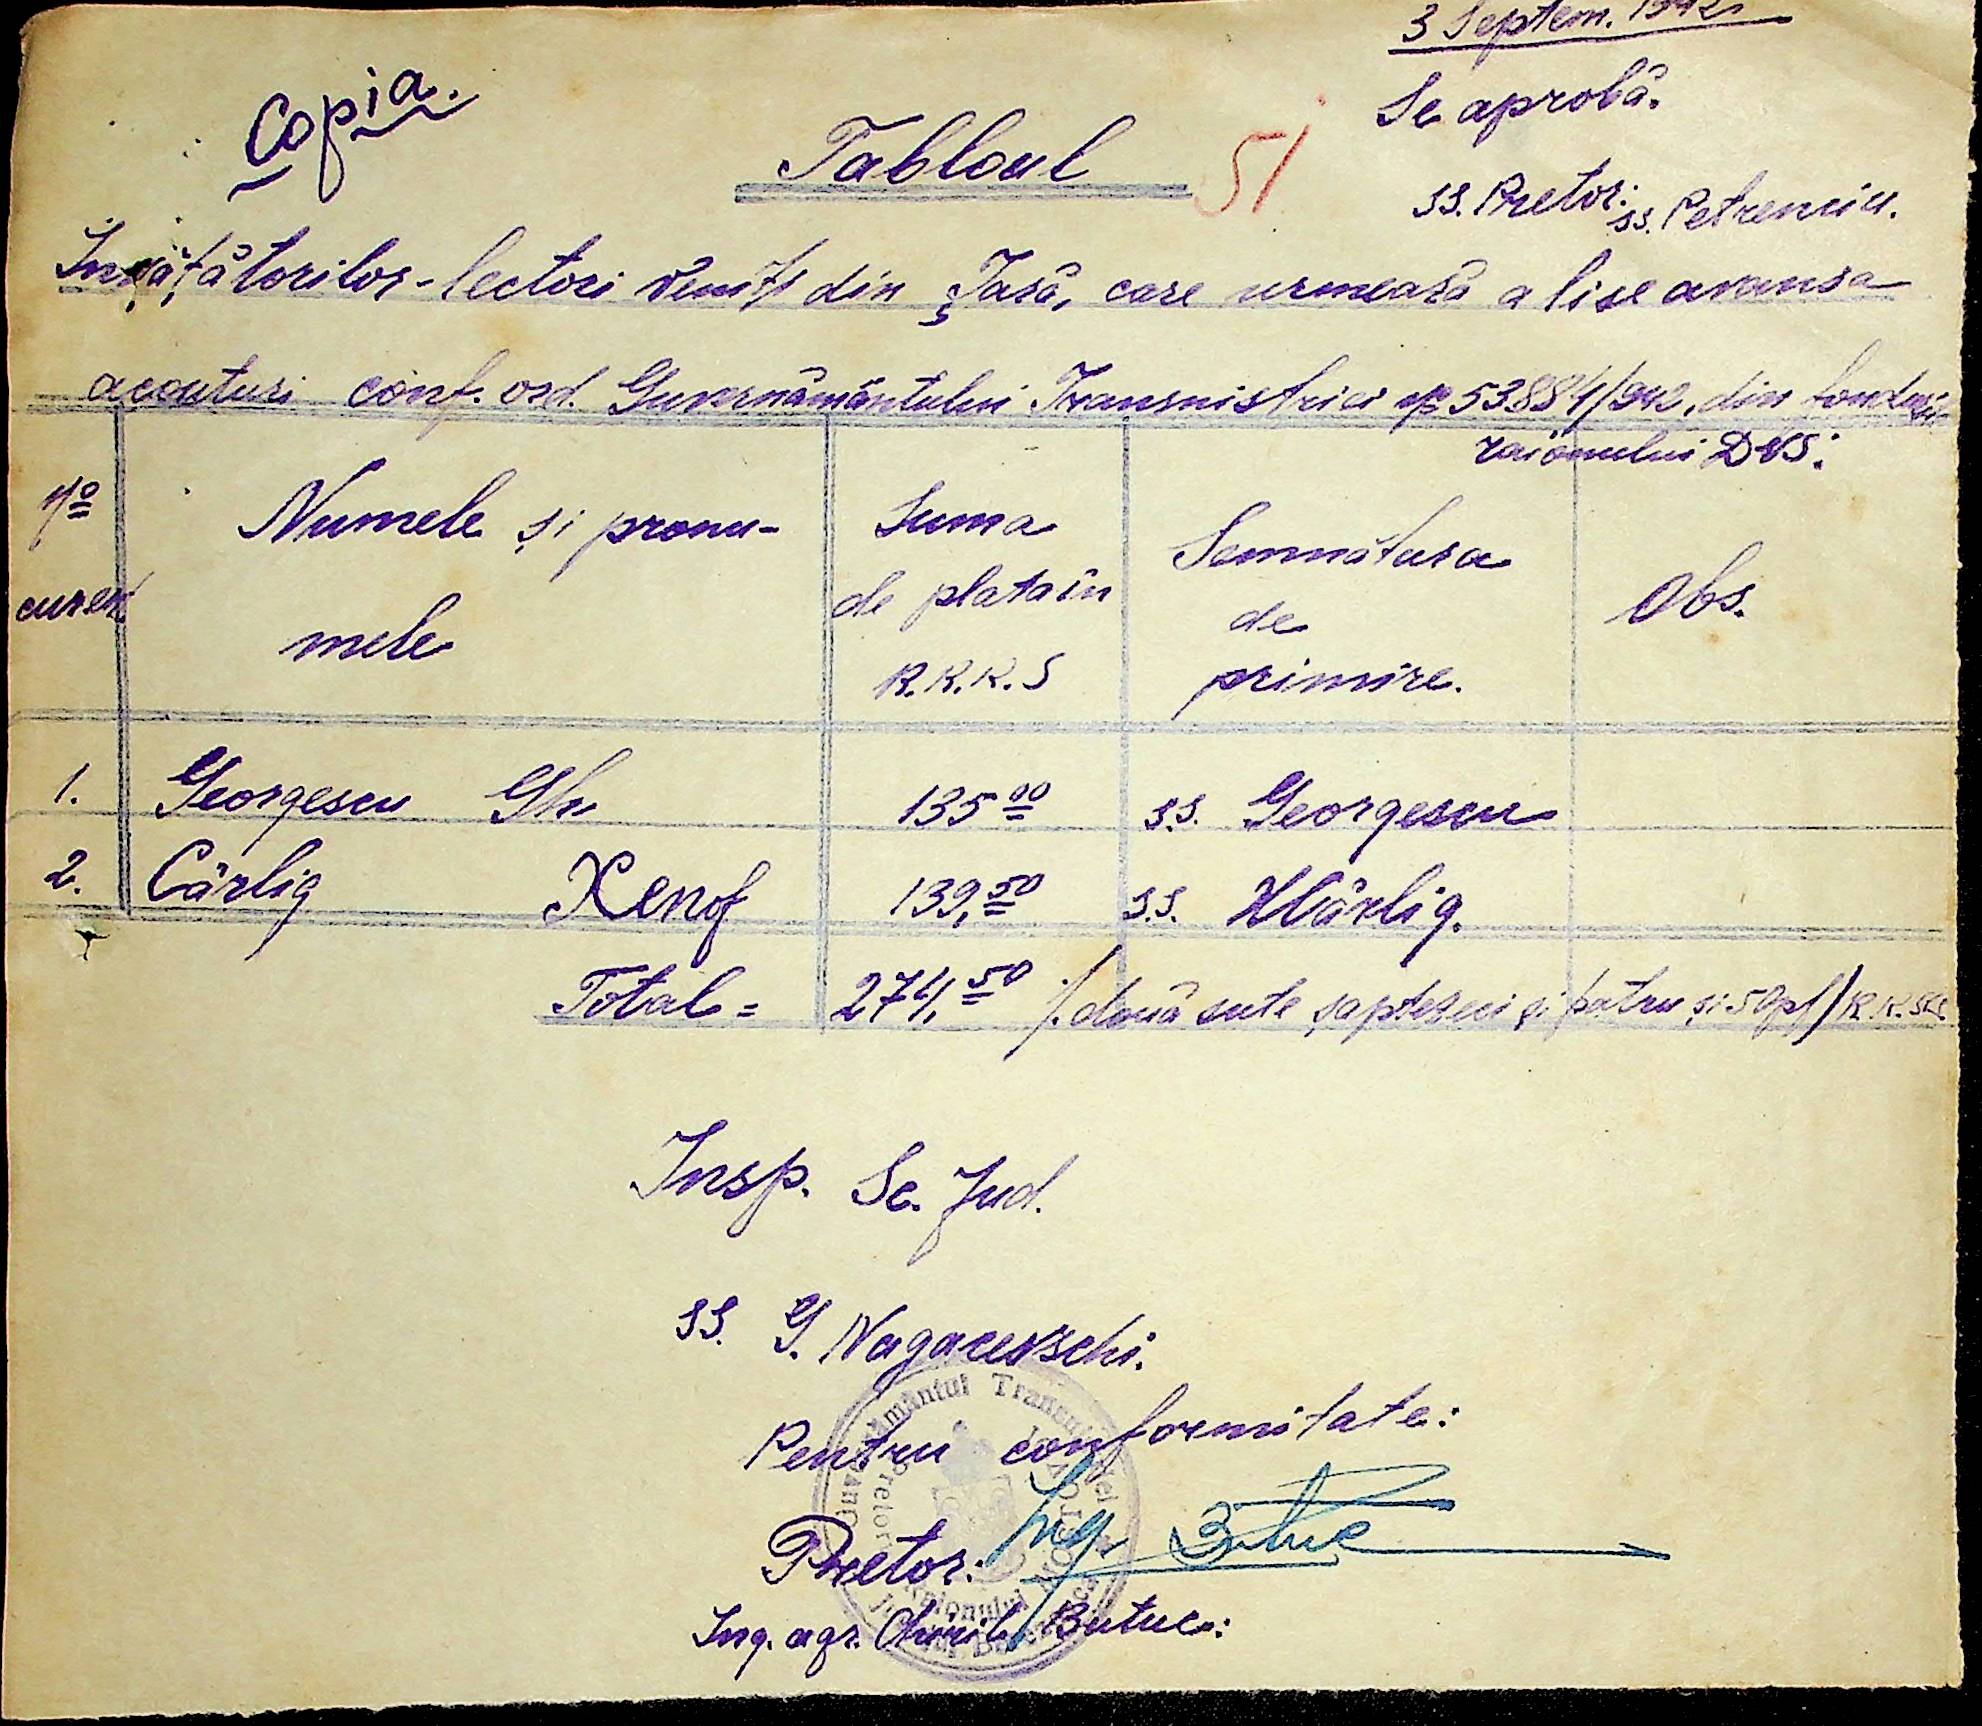 3 Septem. 1942
Copia.
Se aprobă.
Tabloul
51
ss. Pretor: ss. Petrenciu.
Învățătorilor-lectori veniți din Țară, care urmează a li se avansa
aconturi conf. ord. Guvernământului Transnistriei No 53884/942, din fondurile
raionului
No curent
Numele și pronu-
mele
Suma
de plata în
R.K.K.S
Semnătura
de
primire.
Obs.
1. Georgescu Gh 135 00 ss. Georgescu
2. Cârlig Xenof 139,50 s.s. XCârlig.
Total = 274,50 /două sute șaptezeci și patru și 50 pf/ R.K.K.S.
Insp. Sc. Jud.
ss. G. Nagacevschi.
Pentru conformitate:
Pretor: Ing. Butuc
Ing. agr. Chiril Butuc:
Guvernământul Transnistriei
Pretor
Raionului